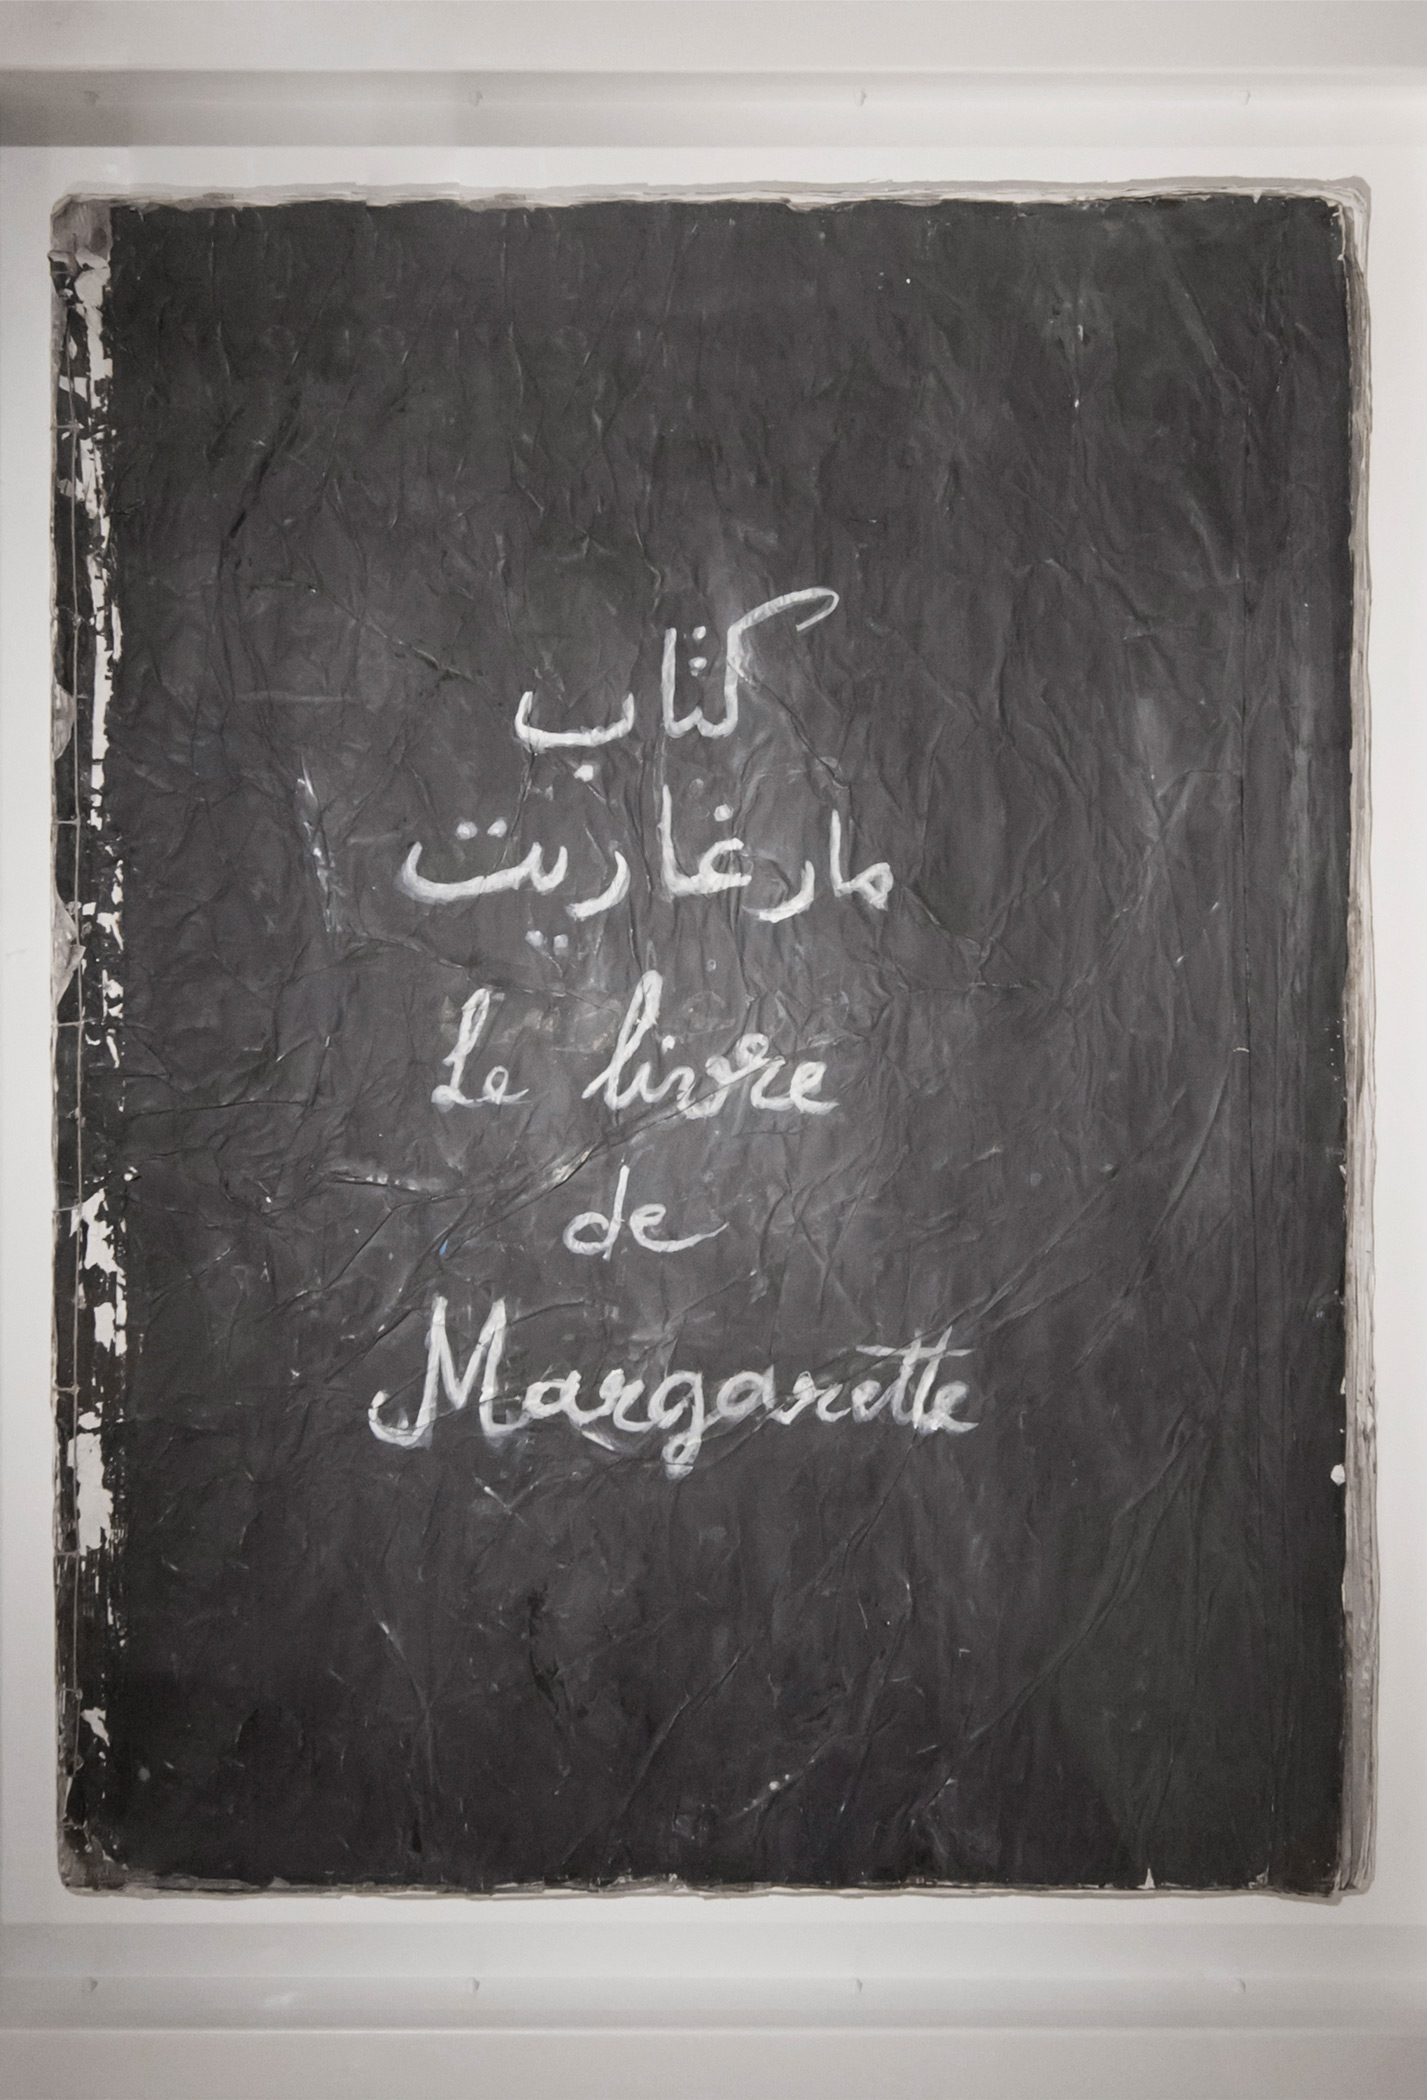 كتاب
مارغاريت
Le livre
de
Margarette